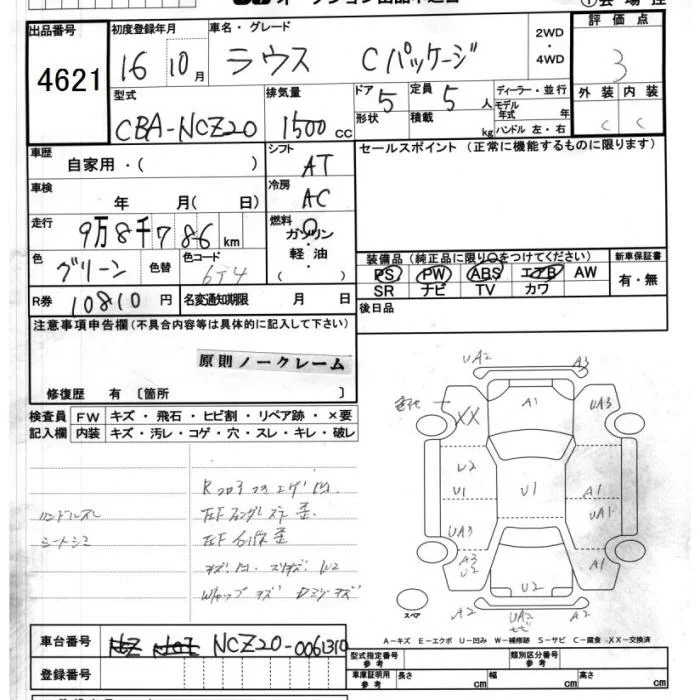 出品番号 4621
初度登録年月 16 10月
車名・グレード ラウス Cパッケージ
2WD・4WD
評価点 3
型式 CBA-NCZ20
排気量 1500cc
ドア 5 形状
定員 5人 積載 kg
ディーラー・並行
モデル年式 年
ハンドル 左・右
外装 C 内装 C
車歴 自家用・( )
シフト AT
セールスポイント (正常に機能するものに限ります)
車検 年 月( 日)
冷房 AC
走行 9万8千786km
燃料 ガソリン・軽油・( )
色 グリーン 色替 色コード 6T4
装備品 (純正品に限り○をつけてください)
PS PW ABS エアB AW
SR ナビ TV カワ
新車保証書 有・無
R券 10810円 名変通知期限 月 日
後日品
注意事項申告欄 (不具合内容等は具体的に記入して下さい)
原則ノークレーム
修復歴 有 [箇所 ]
検査員記入欄
FW キズ・飛石・ヒビ割・リペア跡・×要
内装 キズ・汚レ・コゲ・穴・スレ・キレ・破レ
ハンドルスレ
シートシミ
UA2 A3
XX A1 UA3
U2
U1 U1 A1
UA1
UA3
A3
U2 A1
U2
A2 UA2 A2
スペア
A-キズ E-エクボ U-凹み W-補修跡 S-サビ C-腐食 XX-交換済
車台番号 NCZ20-0061310
登録番号
型式指定番号 参考 類別区分番号 参考
車庫証明用 参考 長さ cm 幅 cm 高さ cm